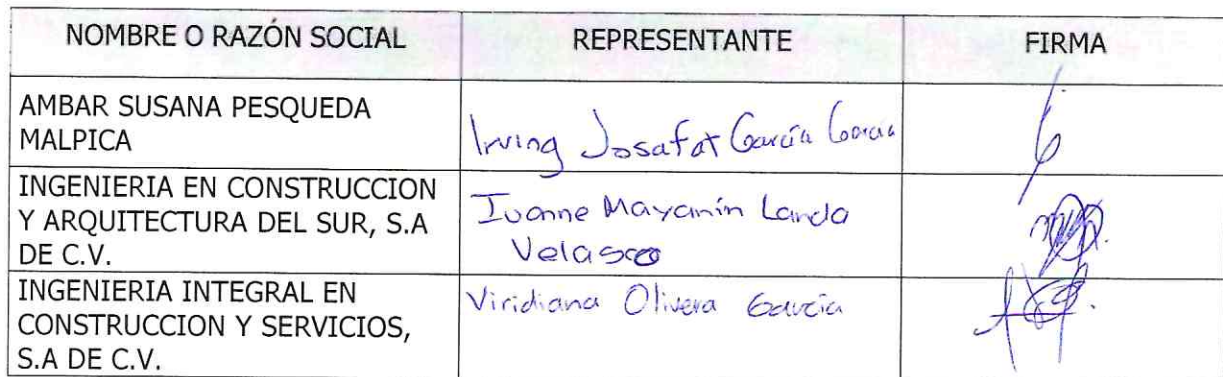 NOMBRE O RAZÓN SOCIAL REPRESENTANTE FIRMA
AMBAR SUSANA PESQUEDA
MALPICA
Irving Josafat García García
INGENIERIA EN CONSTRUCCION
Y ARQUITECTURA DEL SUR, S.A
DE C.V.
Ivonne Mayanín Landa
Velasco
INGENIERIA INTEGRAL EN
CONSTRUCCION Y SERVICIOS,
S.A DE C.V.
Viridiana Olivera García